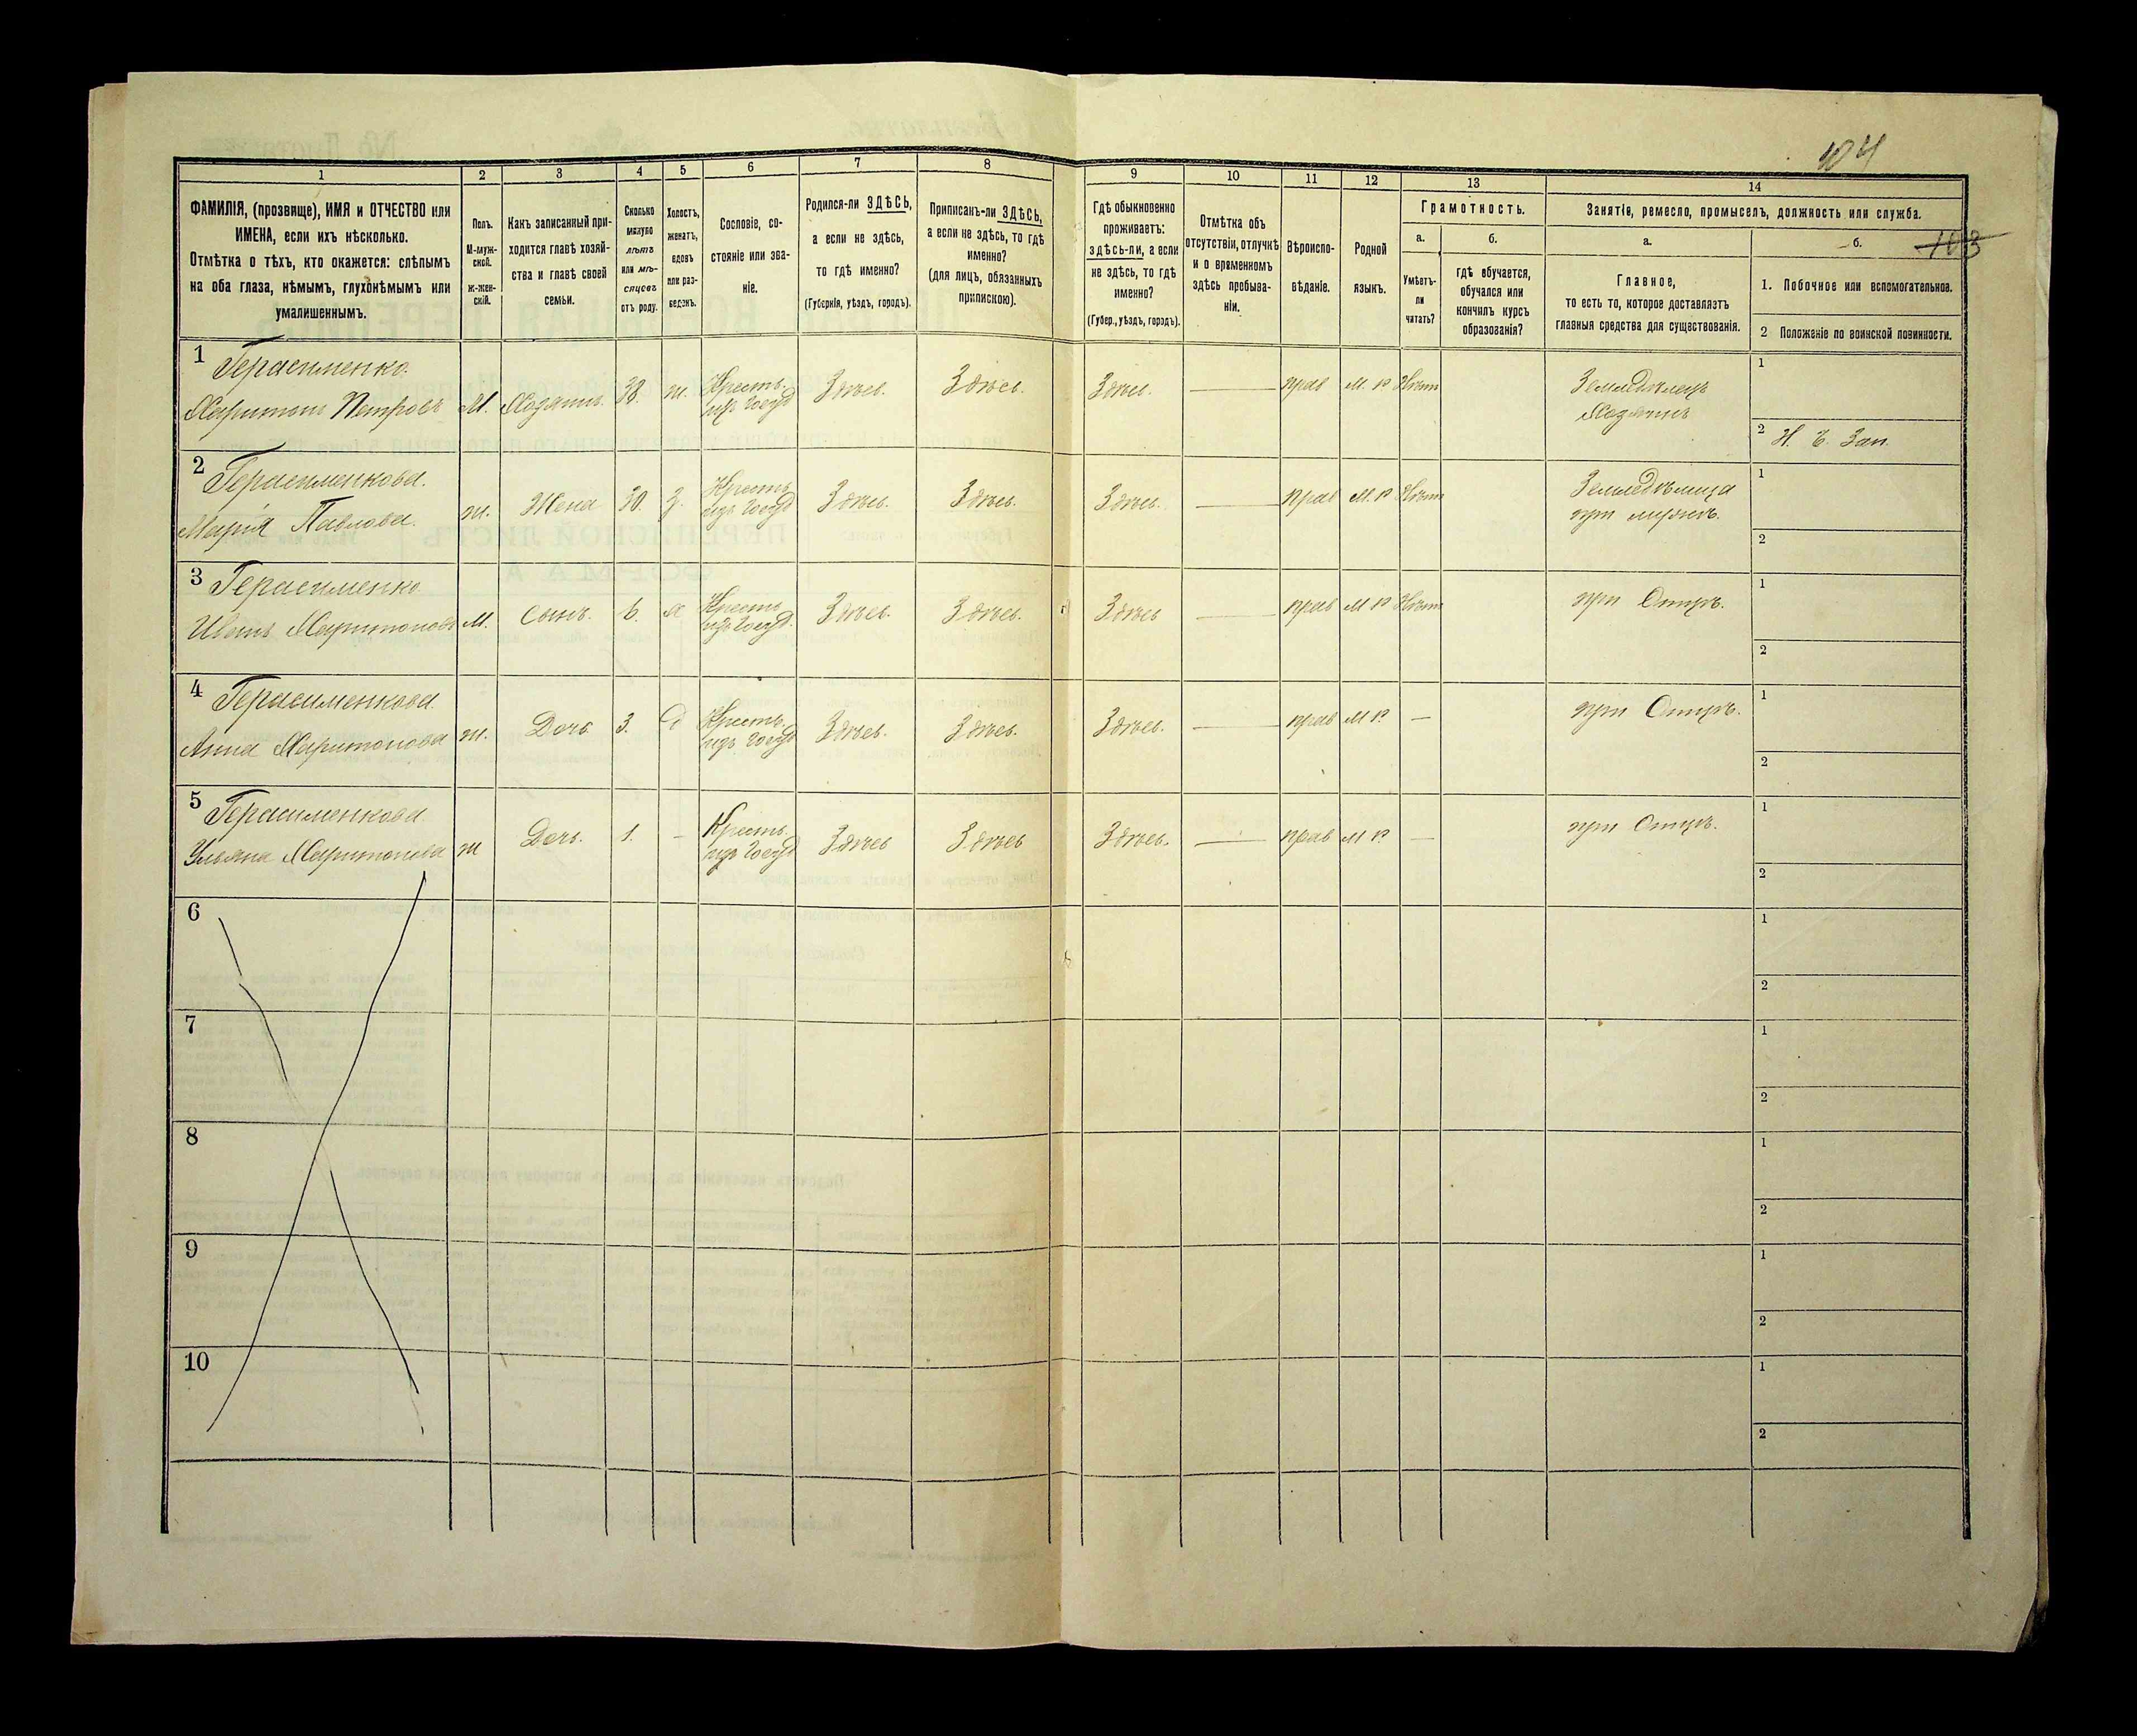 104
103
1 2 3 4 5 6 7 8 9 10 11 12 13 14
ФАМИЛІЯ, (прозвище), ИМЯ и ОТЧЕСТВО или
ИМЕНА, если ихъ нѣсколько.
Отмѣтка о тѣхъ, кто окажется: слѣпымъ
на оба глаза, нѣмымъ, глухонѣмымъ или
умалишеннымъ.
Полъ.
М-муж-
ской.
ж-жен-
скій.
Какъ записанный при-
ходится главѣ хозяй-
ства и главѣ своей
семьи.
Сколько
минуло
лѣтъ
или мѣ-
сяцевъ
отъ роду.
Холостъ,
женатъ,
вдовъ
или раз-
веденъ.
Сословіе, со-
стояніе или зва-
ніе.
Родился-ли ЗДѢСЬ,
а если не здѣсь,
то гдѣ именно?
(Губернія, уѣздъ, городъ).
Приписанъ-ли ЗДѢСЬ,
а если не здѣсь, то гдѣ
именно?
(для лицъ, обязанныхъ
припискою).
Гдѣ обыкновенно
проживаетъ:
здѣсь-ли, а если
не здѣсь, то гдѣ
именно?
(Губер., уѣздъ, городъ).
Отмѣтка объ
отсутствіи, отлучкѣ
и о временномъ
здѣсь пребыва-
ніи.
Вѣроиспо-
вѣданіе.
Родной
языкъ.
Грамотность.
а.
Умѣетъ-
ли
читать?
б.
гдѣ обучается,
обучался или
кончилъ курсъ
образованія?
Занятіе, ремесло, промыселъ, должность или служба.
а.
Главное,
то есть то, которое доставляетъ
главныя средства для существованія.
б.
1. Побочное или вспомогательное.
2 Положеніе по воинской повинности.
1 Герасименко
Харитонъ Петровъ М. Хозяинъ 38. ж. Крестъ. изъ госуд Здѣсь. Здѣсь. Здѣсь. — прав М. Р Нѣтъ Земледѣлецъ
Хозяинъ
1
2 Н. Б. Зап.
2 Герасименкова.
Марія Павлова. ж. Жена 30. з. Крестъ изъ госуд Здѣсь. Здѣсь. Здѣсь. — прав М. Р Нѣтъ Земледѣлица
при мужѣ.
1
2
3 Герасименко
Иванъ Харитоновъ М. Сынъ. 6. х Крестъ изъ госуд. Здѣсь. Здѣсь. Здѣсь — прав М Р Нѣтъ при Отцѣ.
1
2
4 Герасименкова
Анна Харитонова ж. Дочь 3. д Крестъ. изъ госуд Здѣсь. Здѣсь. Здѣсь. — прав М Р. — при Отцѣ.
1
2
5 Герасименкова
Ульяна Харитонова ж Дочь. 1. - Крестъ. изъ госуд Здѣсь Здѣсь Здѣсь. — прав М Р. — при Отцѣ.
1
2
6
1
2
7
1
2
8
1
2
9
1
2
10
1
2